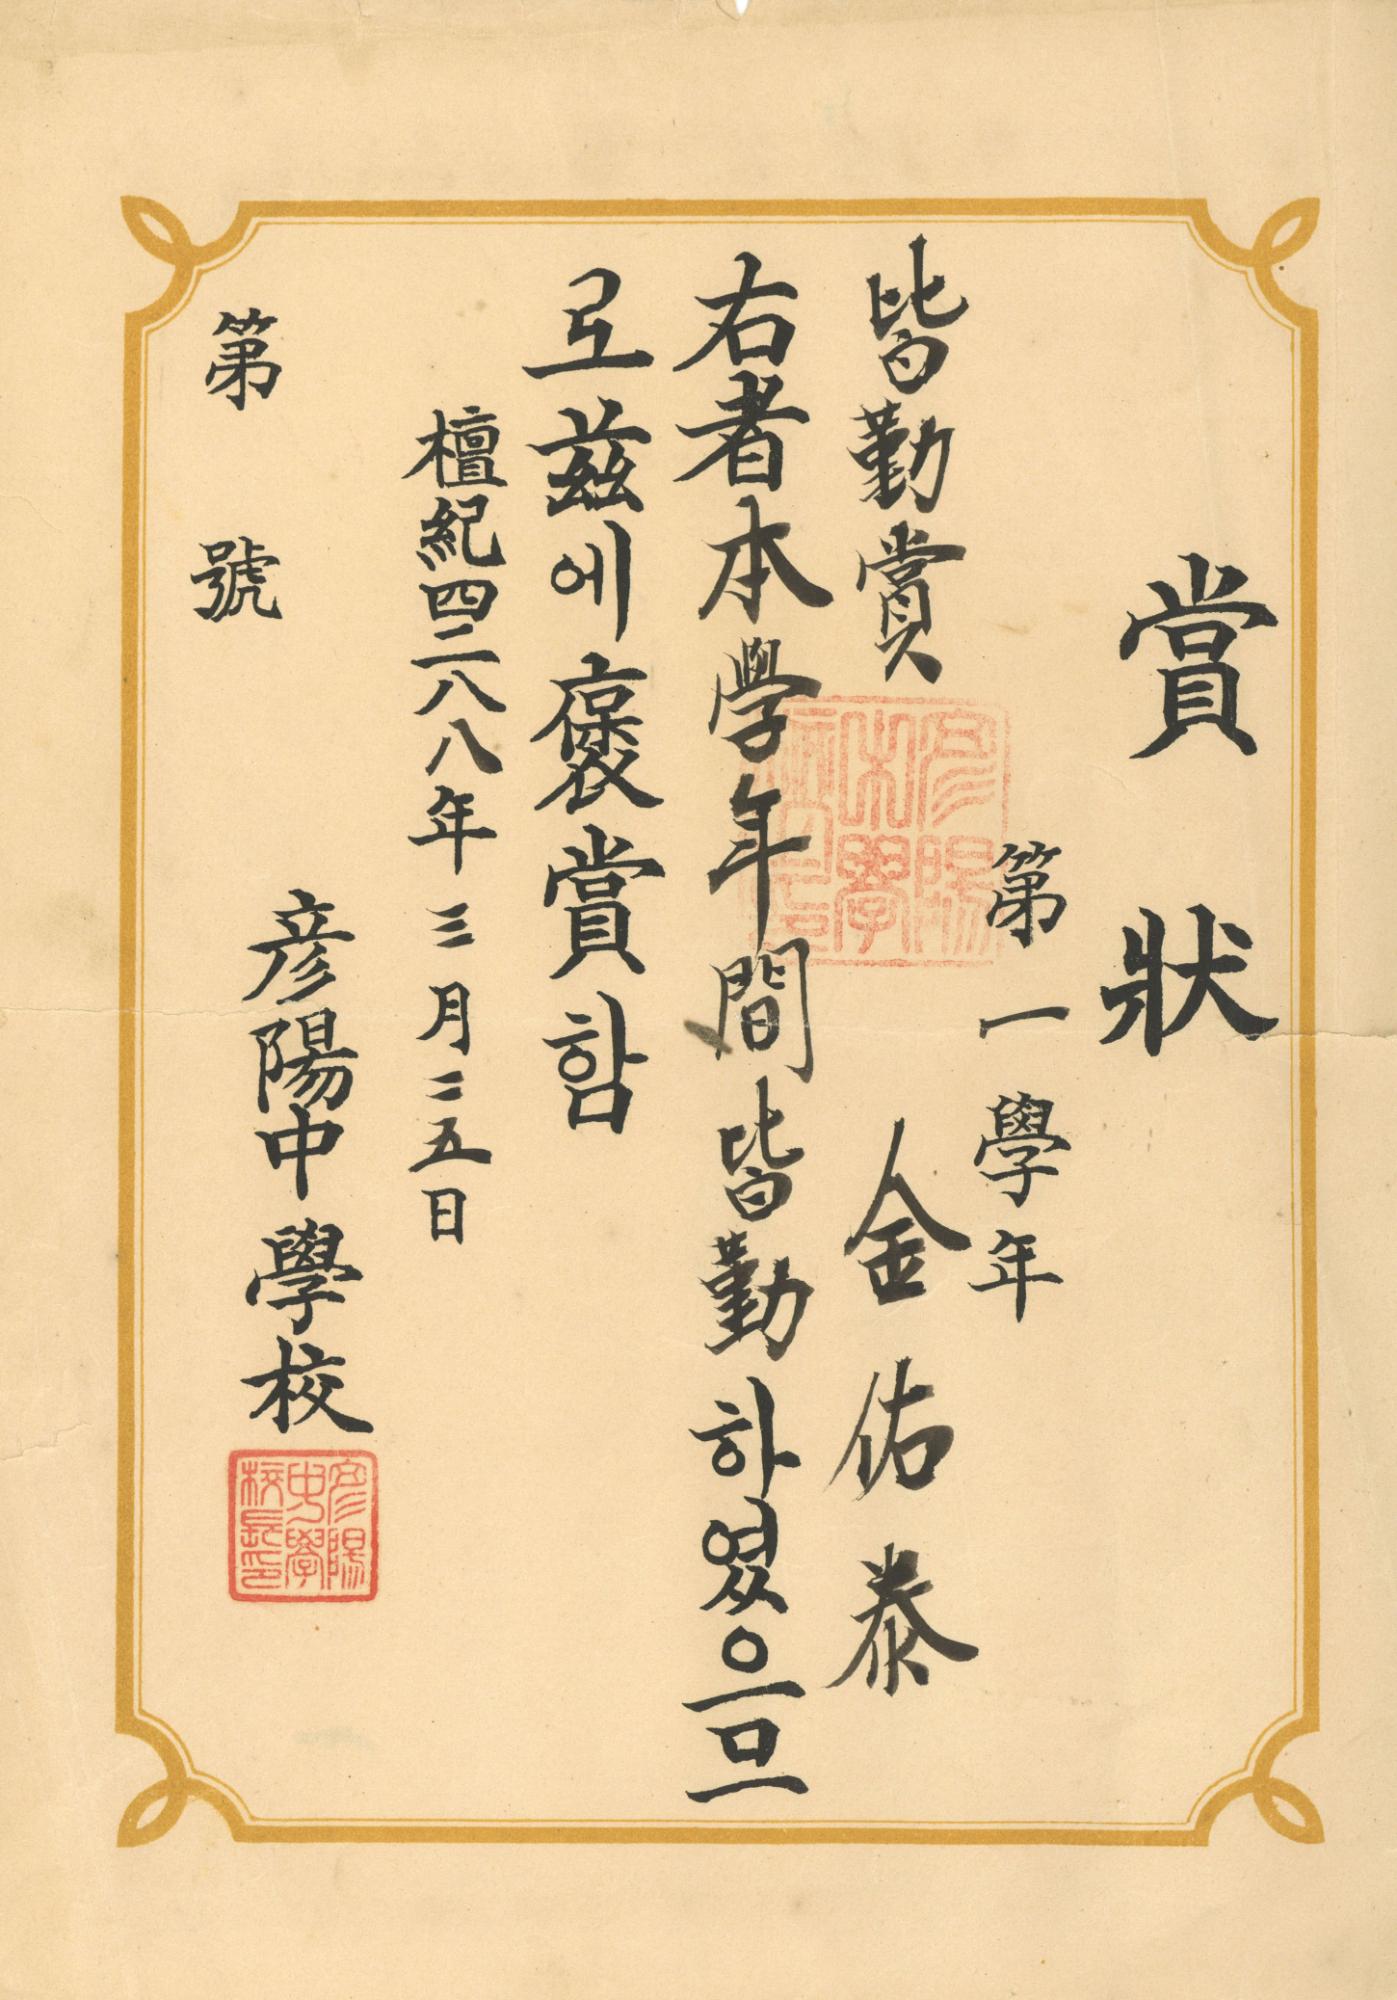 賞狀
第一學年
皆勤賞 金佑泰
右者本學年間皆勤하였으므
로玆에褒賞함
檀紀四二八八年三月二五日
彦陽中學校
第 號
彦陽
中學
校長印